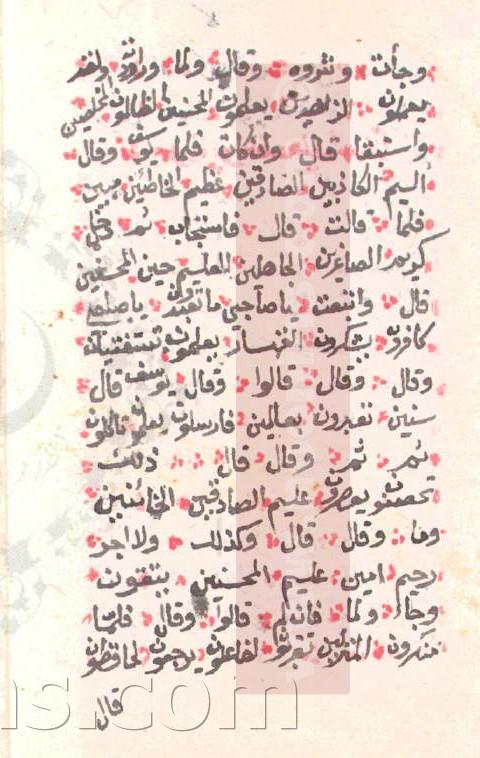 وجأت وشروه وقال ولما وراودته ولقد
يعملون الزاهدين يعلمون المحسنين الظالمون المخلصين
واستبقا قال وان كان فلما يوسف وقال
اليم الكاذبين الصادقين عظيم الخاطئين مبين
فلما قالت قال فاستجاب ثم ودخل
كريم الصاغرين الجاهلين العليم حين المحسنين
قال واتبعت ياصاحبي ماتعبدون ياصاحبي
كافرون يشكرون القهار يعلمون تستفتيان
وقال وقال قالوا وقال يوسف قال
سنين تعبرون بعالمين فارسلون يعلمون تاكلون
ثم ثم وقال قال ذلك
تحصنون يعصرون عليم الصادقين الخائنين
وما وقال قال وكذلك ولاجر
رحيم امين عليم المحسنين يتقون
وجاء ولما فان لم قالوا وقال فلما
منكرون المنزلين تقربون لفاعلون يرجعون لحافظون
قال
ns.com